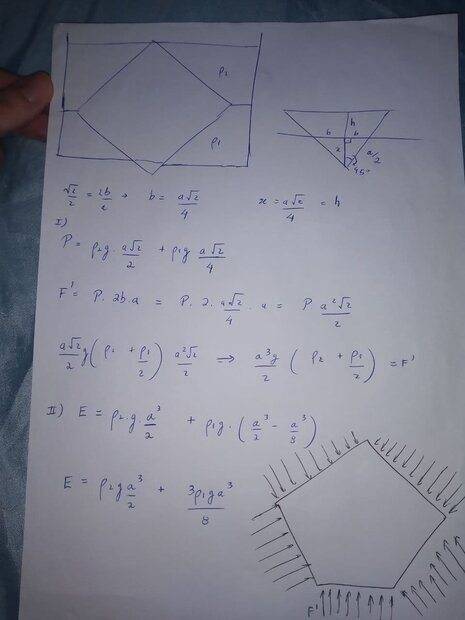 ρ₂
ρ₁
h
b b
x a/2
45°
√2/2 = 2b/a → b = a√2/4 x = a√2/4 = h
I)
P = ρ₂g · a√2/2 + ρ₁g a√2/4
F' = P · 2b · a = P · 2 · a√2/4 · a = P a²√2/2
a√2/2 g (ρ₂ + ρ₁/2) a²√2/2 ⟹ a³g/2 (ρ₂ + ρ₁/2) = F'
II) E = ρ₂ · g · a³/2 + ρ₁g · (a³/2 - a³/8)
E = ρ₂g a³/2 + 3ρ₁ga³/8
F'